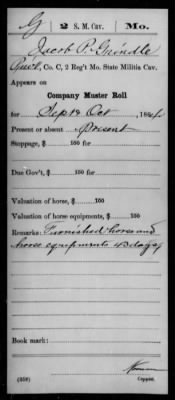 G 2 S. M. Cav. Mo.
Jacob P. Grindle
Pvt., Co. C, 2 Reg't Mo. State Militia Cav.
Appears on
Company Muster Roll
for Sept & Oct, 1864
Present or absent Present
Stoppage, $ 100 for
Due Gov't, $ 100 for
Valuation of horse, $ 100
Valuation of horse equipments, $ 100
Remarks: Furnished horse and
horse equipments 43 days
Book mark:
(358) Copyist.